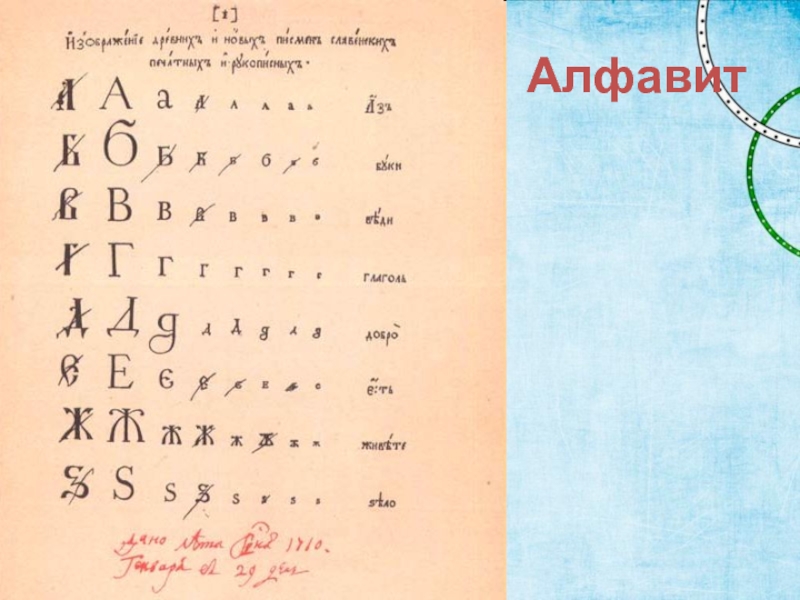 [1]
И҆зображе́нїе дре́внихъ и҆ но́выхъ пи́сменъ славе́нскихъ
печа́тныхъ и҆ рꙋкопи́сныхъ.
А А а а л л а ь А҆́зъ
Б Б Б Б б б бꙋ́ки
В В В В В в в в вѣ́ди
Г Г Г Г Г г г г глаголь
Д Д д д Д д д д добро̀
Е Е Є е е е е с є҆́сть
Ж Ж Ж Ж ж ж ж ж живѣ́те
Ѕ Ѕ Ѕ Ѕ ѕ ѕ ѕ ѕ ѕѣло
дано лѣта 1710.
Генваря въ 29 день
Алфавит